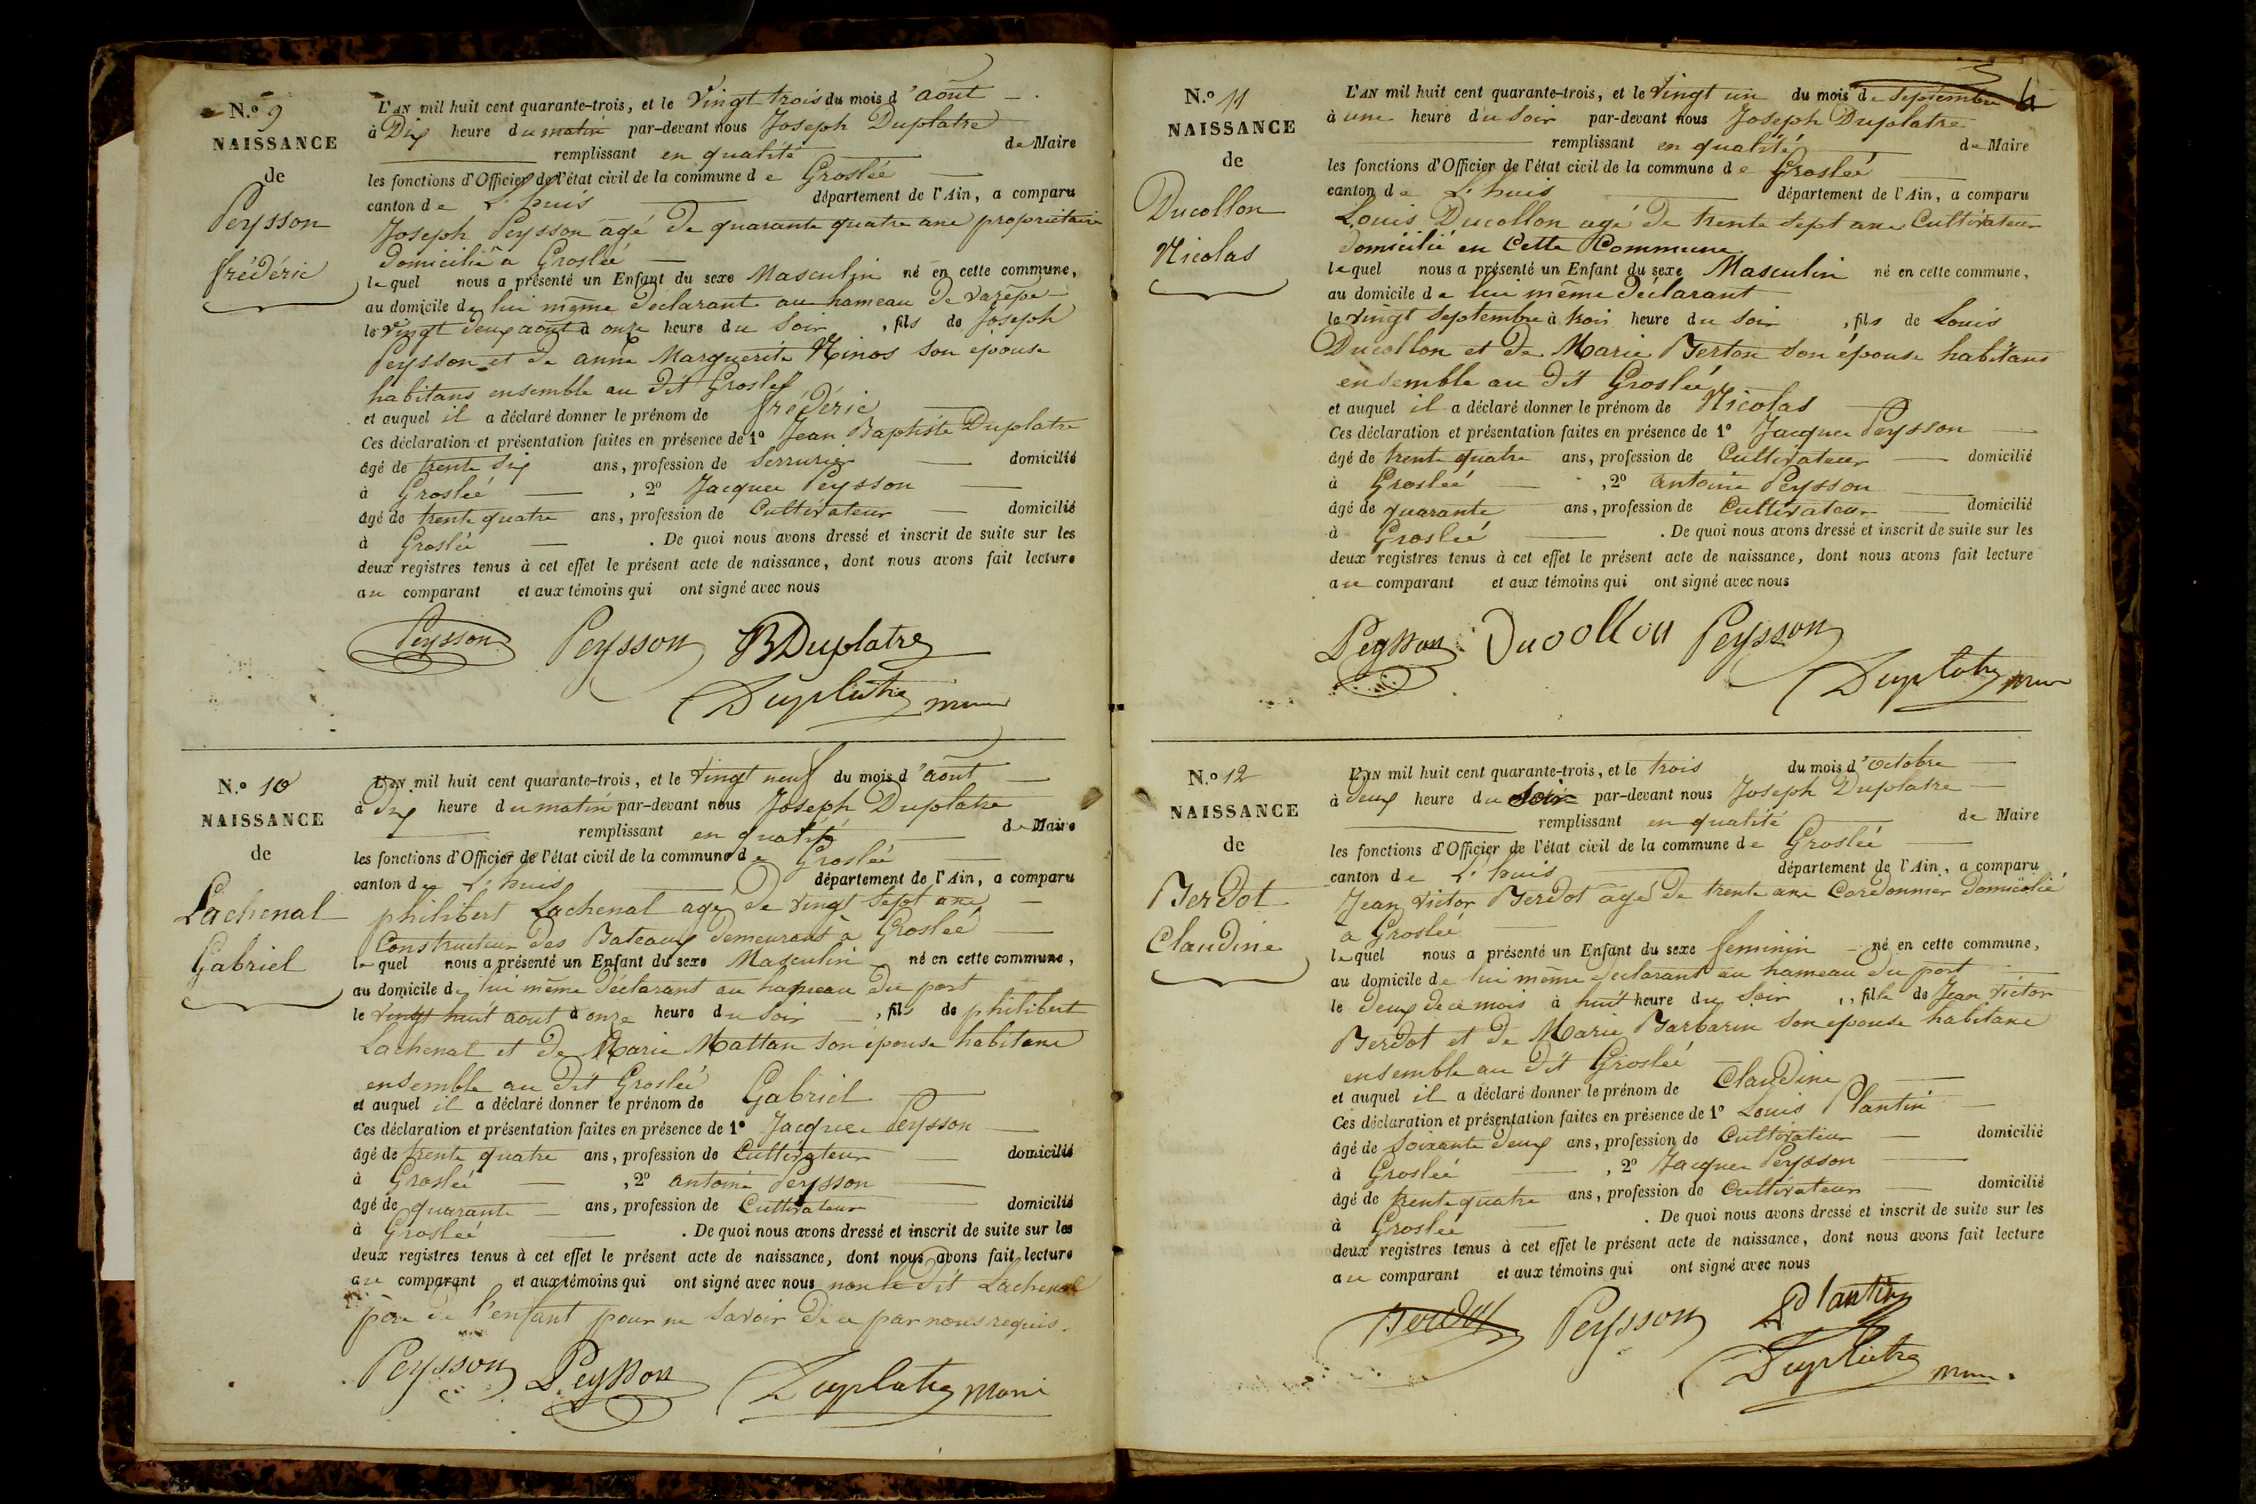 N.o 9
NAISSANCE
de
Peysson
frédéric
L'AN mil huit cent quarante-trois, et le Vingt trois du mois d'août
à Dix heure du matin par-devant nous Joseph Duplatre
remplissant en qualité de Maire
les fonctions d'Officier de l'état civil de la commune de Groslée
canton de L'huis département de l'Ain, a comparu
Joseph Peysson agé de quarante quatre ans propriétaire
domicilié à Groslée
lequel nous a présenté un Enfant du sexe Masculin né en cette commune,
au domicile de lui même déclarant au hameau de varepe
le vingt deux août à onze heure du Soir, fils de Joseph
Peysson et de anne Marguerite Ninos son épouse
habitans ensemble au dit Groslée
et auquel il a déclaré donner le prénom de frédéric
Ces déclaration et présentation faites en présence de 1o Jean Baptiste Duplatre
âgé de trente six ans, profession de Serrurier domicilié
à Groslée, 2o Jacques Peysson
âgé de trente quatre ans, profession de Cultivateur domicilié
à Groslée. De quoi nous avons dressé et inscrit de suite sur les
deux registres tenus à cet effet le présent acte de naissance, dont nous avons fait lecture
au comparant et aux témoins qui ont signé avec nous
Peysson Peysson BDuplatre
Duplatre
N.o 10
NAISSANCE
de
Lachenal
Gabriel
L'AN mil huit cent quarante-trois, et le vingt neuf du mois d'août
à Dix heure du matin par-devant nous Joseph Duplatre
remplissant en qualité de Maire
les fonctions d'Officier de l'état civil de la commune de Groslée
canton de L'huis département de l'Ain, a comparu
philibert Lachenal age de vingt sept ans
Constructeur des Bateaux demeurant à Groslée
lequel nous a présenté un Enfant du sexe Masculin né en cette commune,
au domicile de lui même déclarant au hameau du port
le vingt huit aout à onze heure du Soir, fils de philibert
Lachenal et de Marie Mattan son épouse habitans
ensemble au dit Groslée
et auquel il a déclaré donner le prénom de Gabriel
Ces déclaration et présentation faites en présence de 1o Jacques Peysson
âgé de trente quatre ans, profession de Cultivateur domicilié
à Groslée, 2o antoine Peysson
âgé de quarante ans, profession de Cultivateur domicilié
à Groslée. De quoi nous avons dressé et inscrit de suite sur les
deux registres tenus à cet effet le présent acte de naissance, dont nous avons fait lecture
au comparant et aux témoins qui ont signé avec nous non le dit Lachenal
père de l'enfant pour ne Savoir de ce par nous requis.
Peysson Peysson Duplatre
4
N.o 11
NAISSANCE
de
Ducollon
Nicolas
L'AN mil huit cent quarante-trois, et le vingt un du mois de septembre
à une heure du Soir par-devant nous Joseph Duplatre
remplissant en qualité de Maire
les fonctions d'Officier de l'état civil de la commune de Groslée
canton de L'huis département de l'Ain, a comparu
Louis Ducollon agé de trente sept ans Cultivateur
domicilié en Cette Commune
lequel nous a présenté un Enfant du sexe Masculin né en cette commune,
au domicile de lui même déclarant
le vingt Septembre à trois heure du soir, fils de Louis
Ducollon et de Marie Berton son épouse habitans
ensemble au dit Groslée
et auquel il a déclaré donner le prénom de Nicolas
Ces déclaration et présentation faites en présence de 1o Jacques Peysson
âgé de trente quatre ans, profession de Cultivateur domicilié
à Groslée, 2o antoine Peysson
âgé de quarante ans, profession de Cultivateur domicilié
à Groslée. De quoi nous avons dressé et inscrit de suite sur les
deux registres tenus à cet effet le présent acte de naissance, dont nous avons fait lecture
au comparant et aux témoins qui ont signé avec nous
Peysson Ducollon Peysson
Duplatre
N.o 12
NAISSANCE
de
Berdot
Claudine
L'AN mil huit cent quarante-trois, et le trois du mois d'octobre
à deux heure du Soir par-devant nous Joseph Duplatre
remplissant en qualité de Maire
les fonctions d'Officier de l'état civil de la commune de Groslée
canton de L'huis département de l'Ain, a comparu
Jean victor Berdot agé de trente ans Cordonnier domicilié
à Groslée
lequel nous a présenté un Enfant du sexe feminin né en cette commune,
au domicile de lui même déclarant au hameau du port
le deux de ce mois à huit heure du Soir, fille de Jean victor
Berdot et de Marie Barbarin son epouse habitans
ensemble au dit Groslée
et auquel il a déclaré donner le prénom de Claudine
Ces déclaration et présentation faites en présence de 1o Louis Plantin
âgé de Soixante deux ans, profession de Cultivateur domicilié
à Groslée, 2o Jacques Peysson
âgé de trente quatre ans, profession de Cultivateur domicilié
à Groslée. De quoi nous avons dressé et inscrit de suite sur les
deux registres tenus à cet effet le présent acte de naissance, dont nous avons fait lecture
au comparant et aux témoins qui ont signé avec nous
Berdot Peysson Plantin
Duplatre